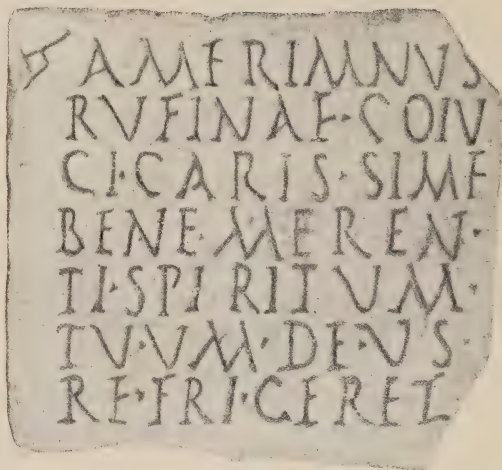 AMERIMNVS
RVFINAE·COIV
CI·CARIS·SIME
BENE·MEREN·
TI·SPIRITUM·
TU·UM·DE·US·
RE·FRI·GERET